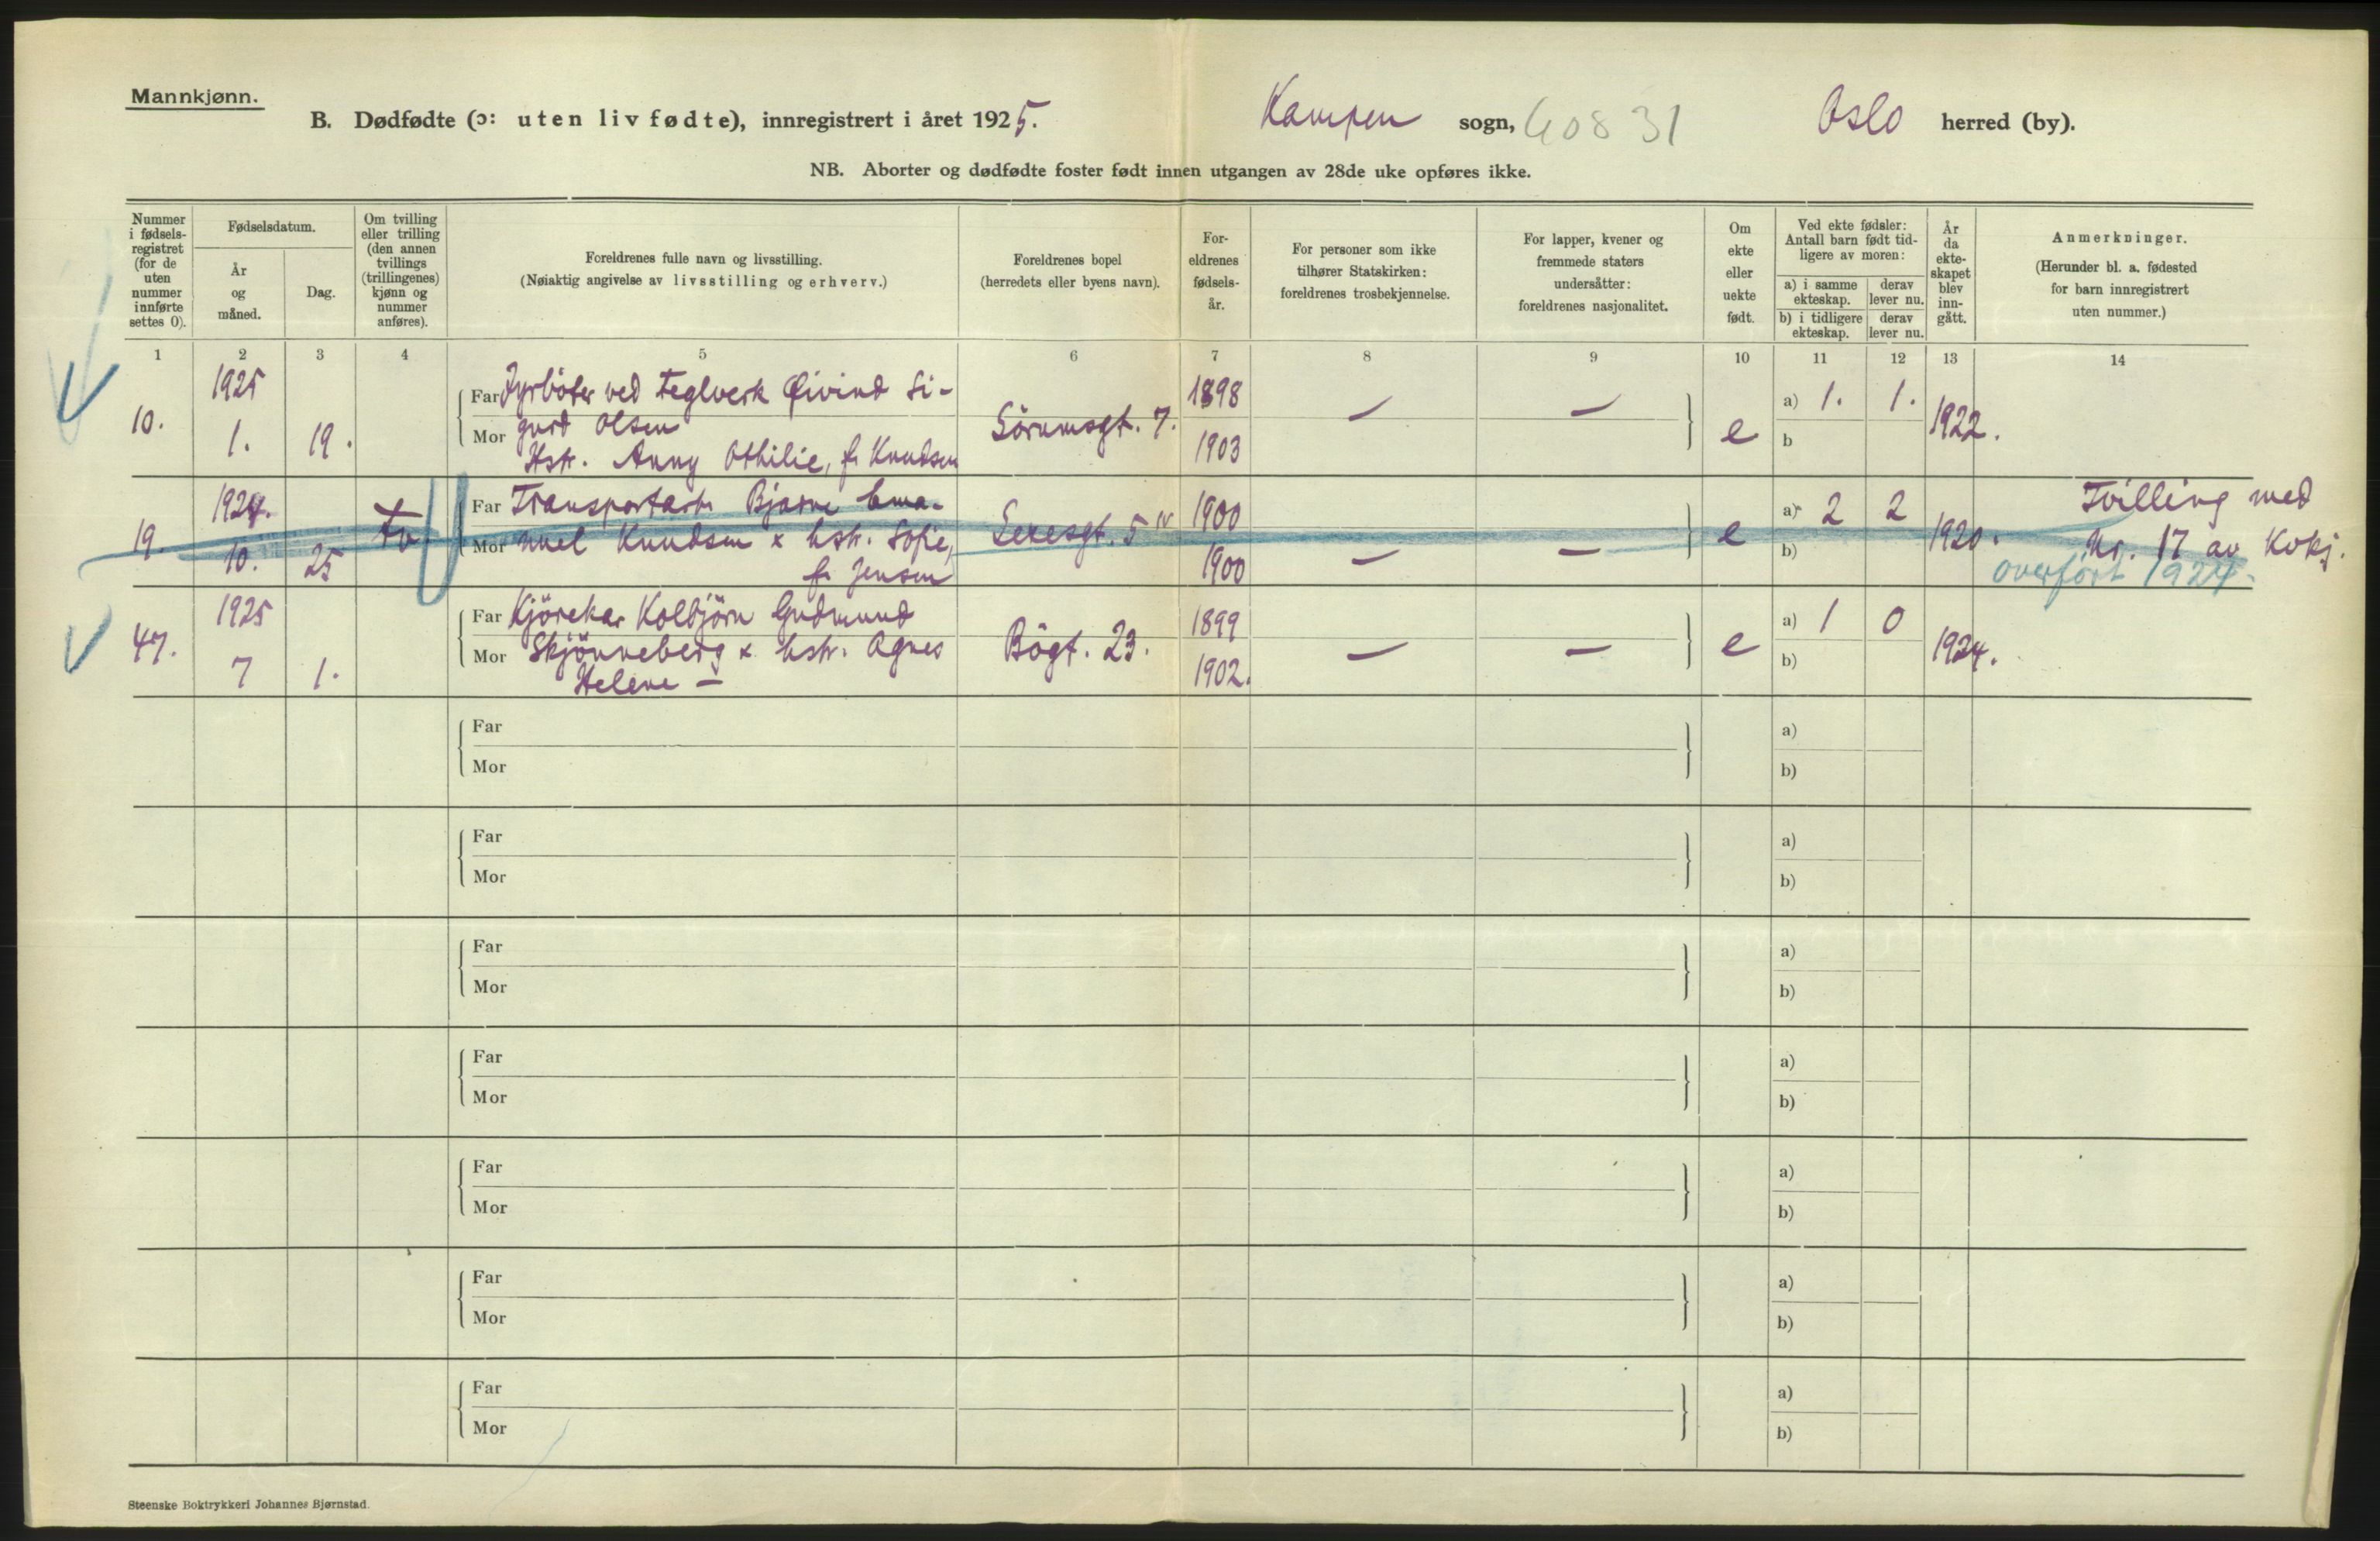 Mannkjønn.
B. Dødfødte (ɔ: uten liv fødte), innregistrert i året 1925. Kampen sogn, 60831 Oslo herred (by).
NB. Aborter og dødfødte foster født innen utgangen av 28de uke opføres ikke.
Nummer i fødselsregistret (for de uten nummer innførte settes 0).
Fødselsdatum.
År og måned.
Dag.
Om tvilling eller trilling (den annen tvillings (trillingenes) kjønn og nummer anføres).
Foreldrenes fulle navn og livsstilling.
(Nøiaktig angivelse av livsstilling og erhverv.)
Foreldrenes bopel
(herredets eller byens navn).
Foreldrenes fødselsår.
For personer som ikke tilhører Statskirken: foreldrenes trosbekjennelse.
For lapper, kvener og fremmede staters undersåtter: foreldrenes nasjonalitet.
Om ekte eller uekte født.
Ved ekte fødsler: Antall barn født tidligere av moren:
a) i samme ekteskap.
derav lever nu.
b) i tidligere ekteskap.
derav lever nu.
År da ekteskapet blev inngått.
Anmerkninger.
(Herunder bl. a. fødested for barn innregistrert uten nummer.)
1 2 3 4 5 6 7 8 9 10 11 12 13 14
10. 1925 1. 19.
Far Fyrböter ved Teglverk Öivind Si-
Mor gurd Olsen
Hstr. Anny Othilie, f. Knudsen
Sörumsgt. 7. 1898 1903 — — e a) 1. 1. b 1922.
19. 1924. 10. 25 tv.
Far Transportarb. Bjarne Ema-
Mor nuel Knudsen x hstr. Sofie,
f. Jensen
gt. 5 IV 1900 1900 — — e a) 2 2 b) 1920.
Tvilling med
Nr. 17 av Kvkj.
overfört 1924.
47. 1925 7 1.
Far Kjörekar Kolbjörn Gudmund
Mor Skjönneberg x hstr. Agnes
Helene —
Bögt. 23. 1899 1902. — — e a) 1 0 b) 1924.
Far a)
Mor b)
Far a)
Mor b)
Far a)
Mor b)
Far a)
Mor b)
Far a)
Mor b)
Far a)
Mor b)
Far a)
Mor b)
Steenske Boktrykkeri Johannes Bjørnstad.